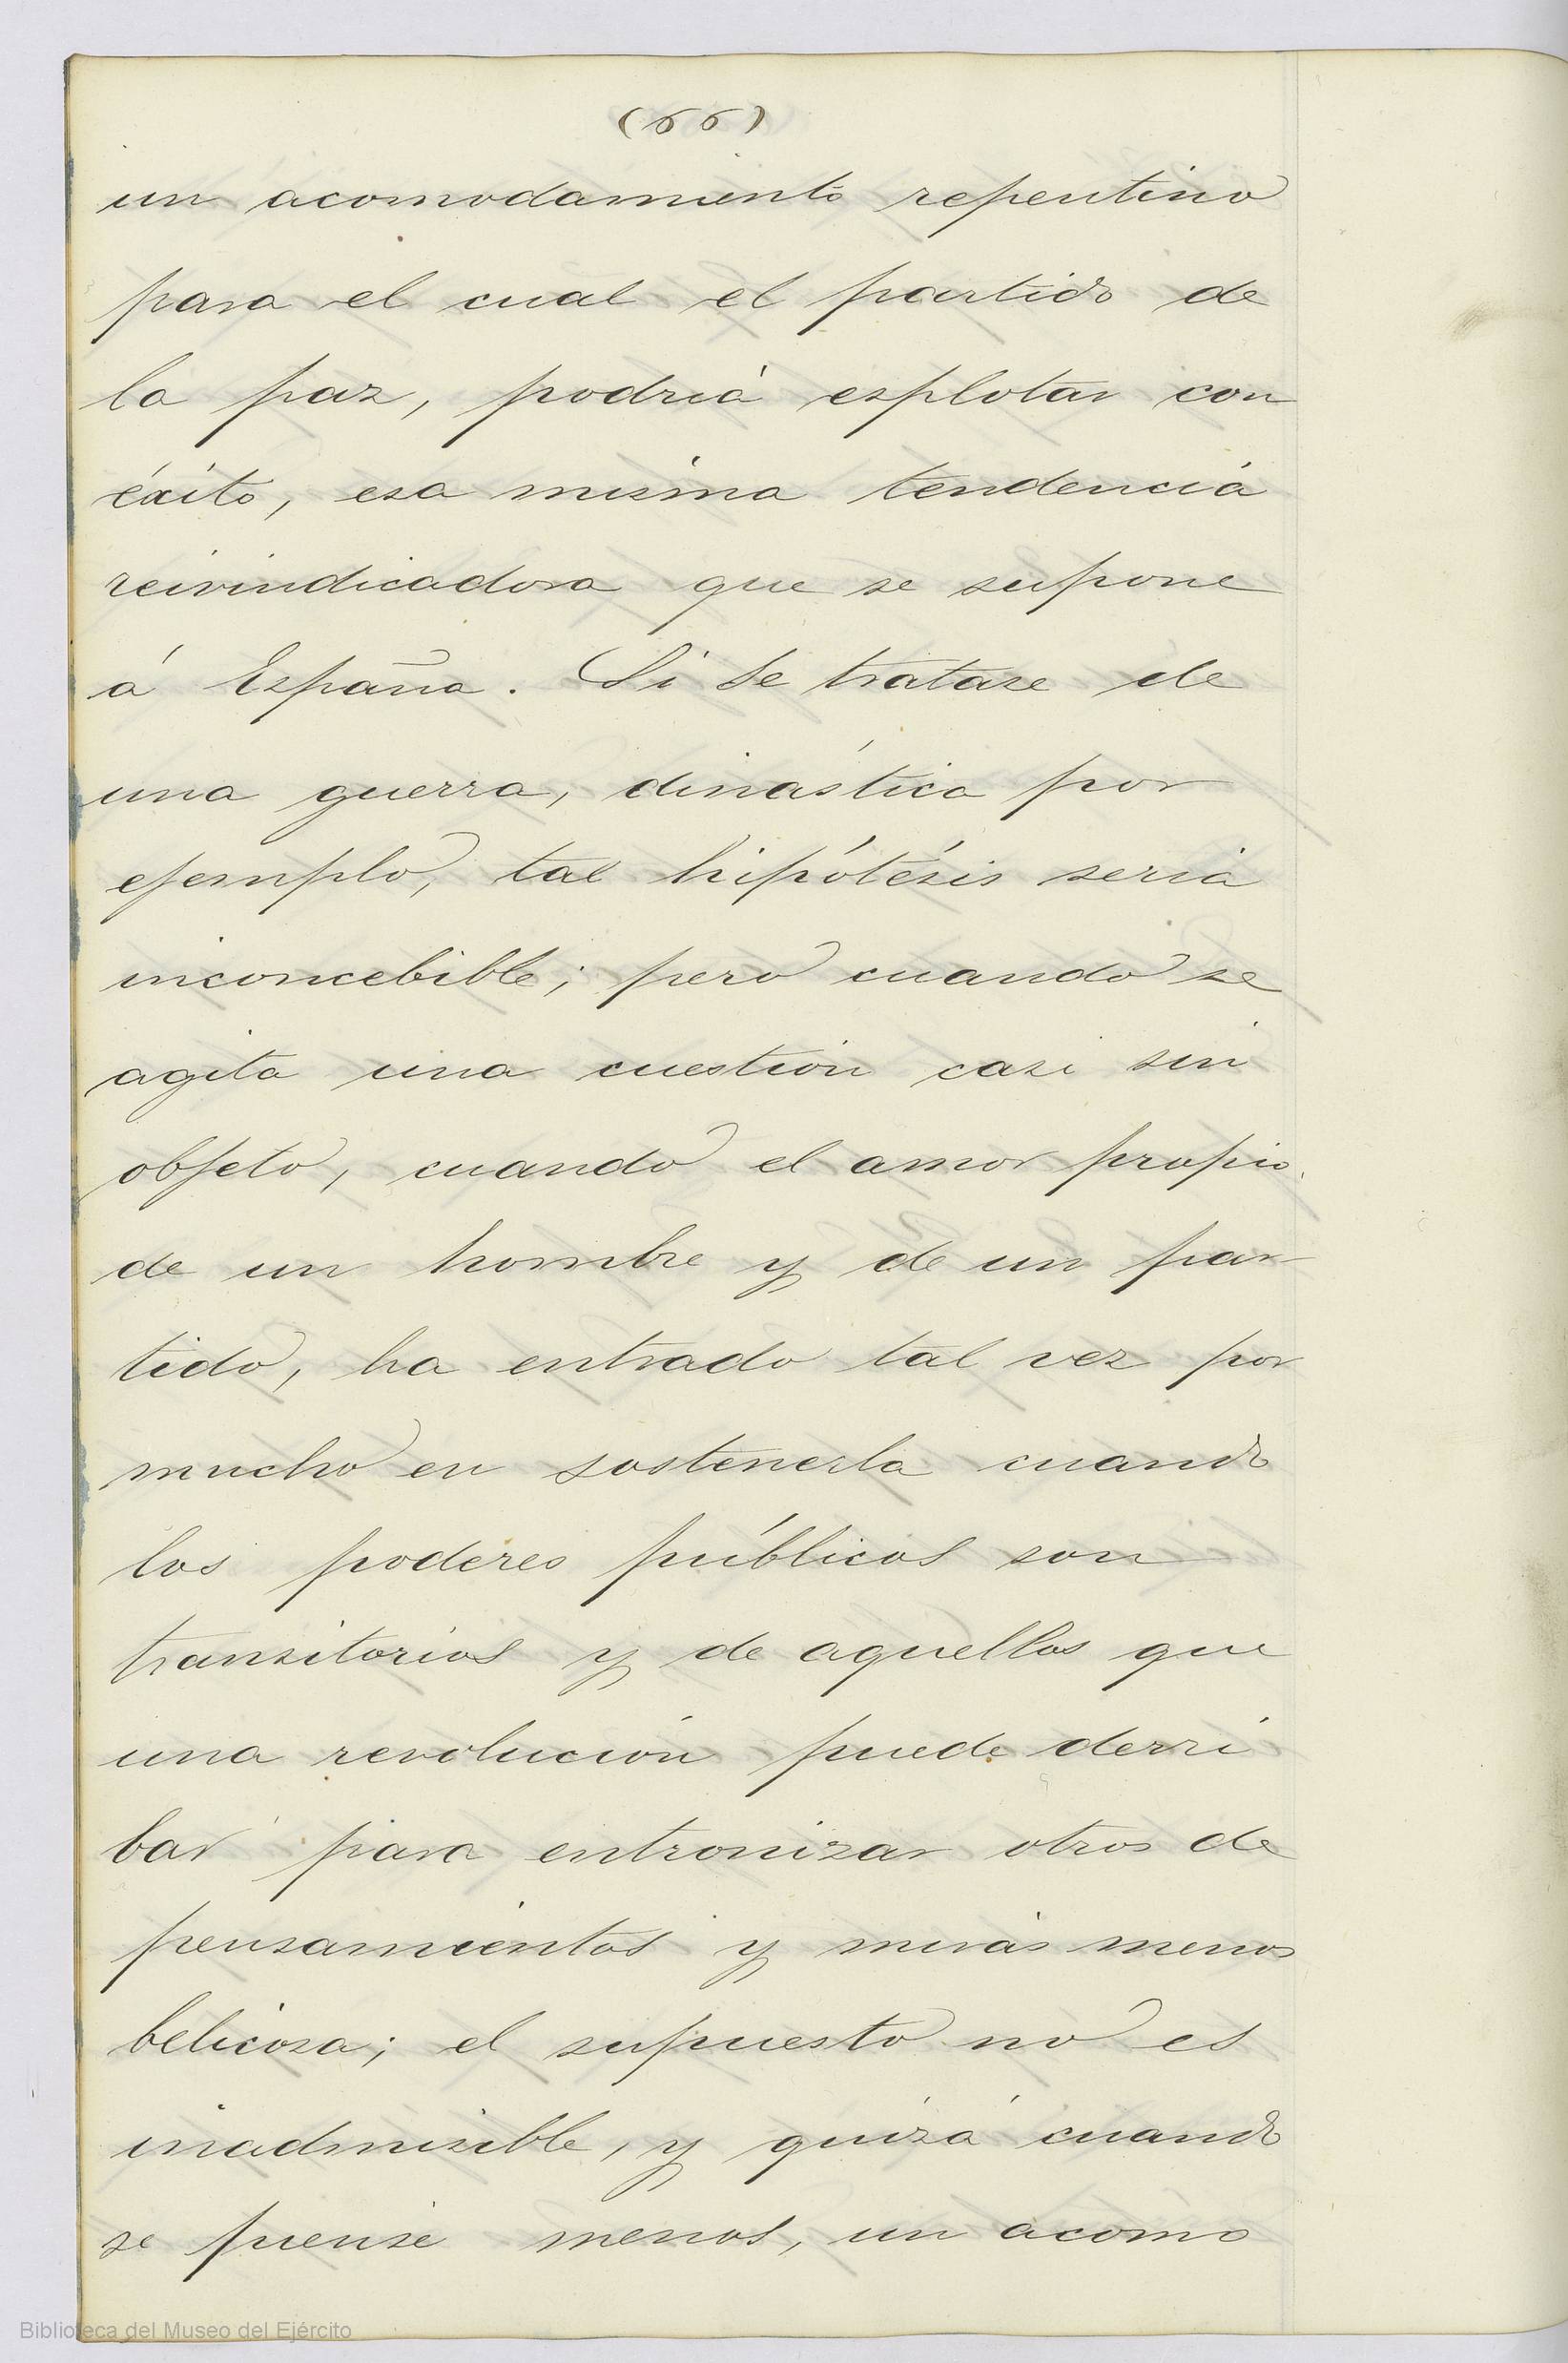 (66)
un acomodamiento repentino
para el cual el partido de
la paz, podria esplotar con
éxito, esa misma tendencia
reivindicadora que se supone
á España. Si se tratase de
una guerra, dinástica por
ejemplo, tal hipótésis seria
inconcebible; pero cuando se
agita una cuestion casi sin
objeto, cuando el amor propio
de un hombre y de un par
tido, ha entrado tal vez por
mucho en sostenerla cuando
los poderes públicos son
transitorios y de aquellos que
una revolución puede derri
bar para entronizar otros de
pensamientos y miras menos
belicosa; el supuesto no es
inadmisible, y quizá cuando
se piense menos, un acomo
Biblioteca del Museo del Ejército